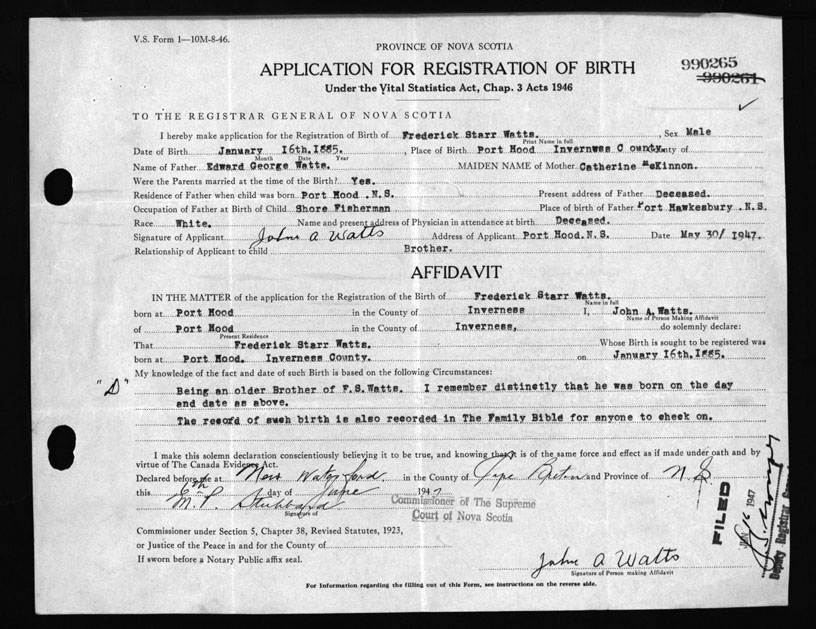 V.S. Form 1—10M-8-46.
PROVINCE OF NOVA SCOTIA
APPLICATION FOR REGISTRATION OF BIRTH
990265
990261
Under the Vital Statistics Act, Chap. 3 Acts 1946
TO THE REGISTRAR GENERAL OF NOVA SCOTIA
I hereby make application for the Registration of Birth of Frederick Starr Watts. , Sex Male
Print Name in full
Date of Birth January 16th.1885. , Place of Birth Port Hood Invernwss C ounty. County of
Month Date Year
Name of Father Edward George Watts. MAIDEN NAME of Mother Catherine McKinnon.
Were the Parents married at the time of the Birth? Yes.
Residence of Father when child was born Port Hood .N.S. Present address of Father Deceased.
Occupation of Father at Birth of Child Shore Fisherman Place of birth of Father Port Hawkesbury .N.S.
Race White. Name and present address of Physician in attendance at birth Deceased.
Signature of Applicant John A Watts Address of Applicant Port Hood.N.S. Date May 30/ 1947.
Relationship of Applicant to child Brother.
AFFIDAVIT
IN THE MATTER of the application for the Registration of the Birth of Frederick Starr Watts.
Name in full
born at Port Hood in the County of Inverness I, John A.Watts.
Name of Person Making Affidavit
of Port Hood in the County of Inverness, do solemnly declare:
Present Residence
That Frederick Starr Watts. Whose Birth is sought to be registered was
born at Port Hood. Inverness County. on January 16th.1885.
My knowledge of the fact and date of such Birth is based on the following Circumstances:
"D"
Being an older Brother of F.S.Watts. I remember distinctly that he was born on the day
and date as above.
The record of such birth is also recorded in The Family Bible for anyone to check on.
I make this solemn declaration conscientiously believing it to be true, and knowing that it is of the same force and effect as if made under oath and by
virtue of The Canada Evidence Act.
Declared before me at New Waterford. in the County of Cape Breton and Province of N S
this day of June 1947
M. P.
Signature of
Commissioner of The Supreme
Court of Nova Scotia
Commissioner under Section 5, Chapter 38, Revised Statutes, 1923,
or Justice of the Peace in and for the County of
If sworn before a Notary Public affix seal.
John A Watts
Signature of Person making Affidavit
For Information regarding the filling out of this Form, see instructions on the reverse side.
FILED
1947
Deputy Registrar